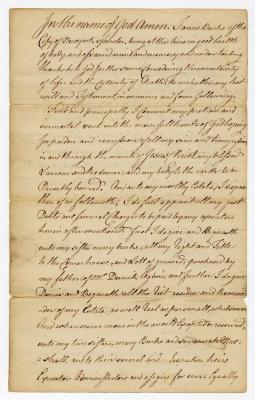 In the name of God Amen. I ann Burks of the
City of Newyork Spinster, being at this time in good health
of body, and of sound mind and memory and understanding
thanks be to God for the same Considering the uncertainty
of life, and the Certainty of Death, Do make this my last
will and Testament in manner and form following.
First and principally I Commit my precious and
immortal soul into the mercifull hands of God hoping
for pardon and remission of all my sins and transgressions
in and through the merits of Jesus Christ my blessed
Saviour and redeemer, and my body to the earth to be
Decently buried. And as to my worldly Estate, I dispose
thereof as followeth; I do first appoint all my just
Debts and funeral Charges to be paid by my executors
herein aftermentioned. First, I do give and Bequeath
unto my sister mary burks, all my Right and Title
to the house, and Lott of ground, purchased by
my father of Mr. and further I do give
Devise and Bequeath all the Rest residue and remain-
der of my Estate, as well Real as personall, whatsoever
And wheresoever none in the world Excepted or reserved,
unto my two sisters, mary Burks and
and to their several and respective heirs
Executors Administrators and assigns for ever. Equally